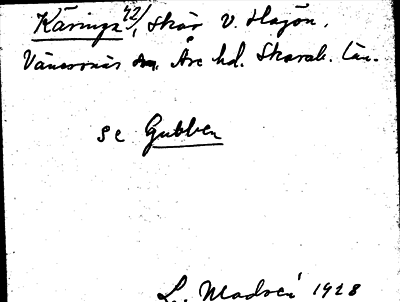 Käringa 42/, skär V. Hajön.
Vänersnäs sn, Åse hd. Skarab. län.
se Gubben
L. Modén 1928